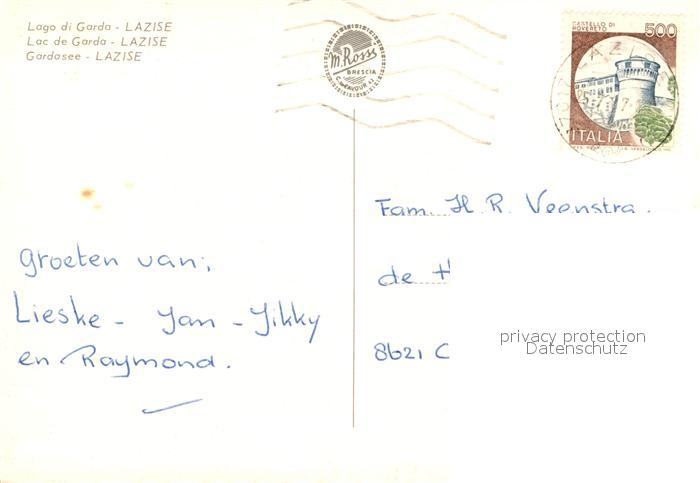 Lago di Garda - LAZISE
Lac de Garda - LAZISE
Gardasee - LAZISE
M. Rossi
BRESCIA
C. CAVOUR 42
CASTELLO DI
ROVERETO
500
LAZISE
ITALIA
Fam. H. R. Veenstra.
de H
8621 C
groeten van;
Lieske - Jan - Jikky
en Raymond.
privacy protection
Datenschutz